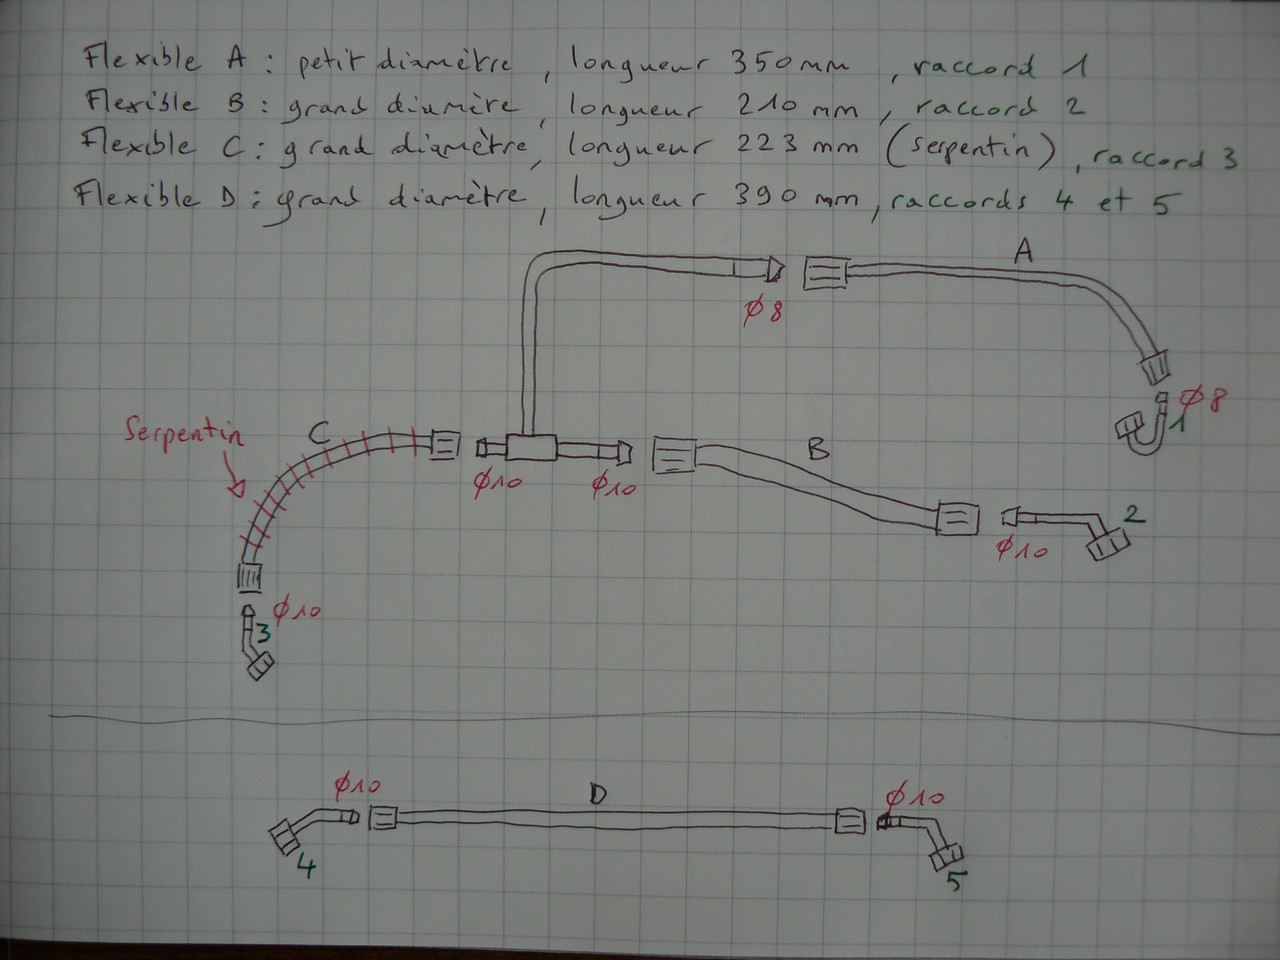 Flexible A : petit diamètre, longueur 350 mm, raccord 1
Flexible B : grand diamère, longueur 210 mm, raccord 2
Flexible C : grand diamètre, longueur 223 mm (serpentin), raccord 3
Flexible D : grand diamètre, longueur 390 mm, raccords 4 et 5
A
Ø8
Ø8
1
Serpentin
C
B
Ø10
Ø10
2
Ø10
Ø10
3
Ø10
D
Ø10
4
5